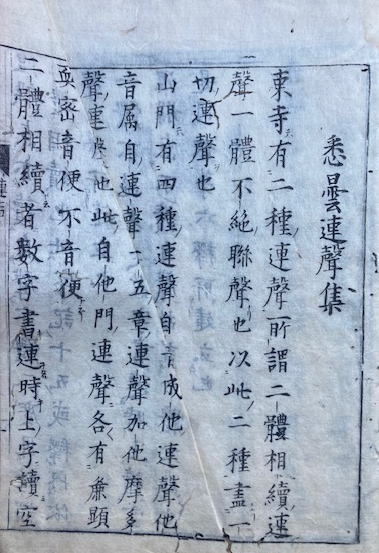 悉曇連聲集
東寺有二種連聲所謂二體相續連
聲一體不絶聯聲也以此二種盡一
切連聲也
山門有四種連聲自音成他連聲他
音属自連聲五章連聲加他摩多
聲連聲也此自他門連聲各有兼顕
密音便不音便
二體相續者數字書連時上字讀空